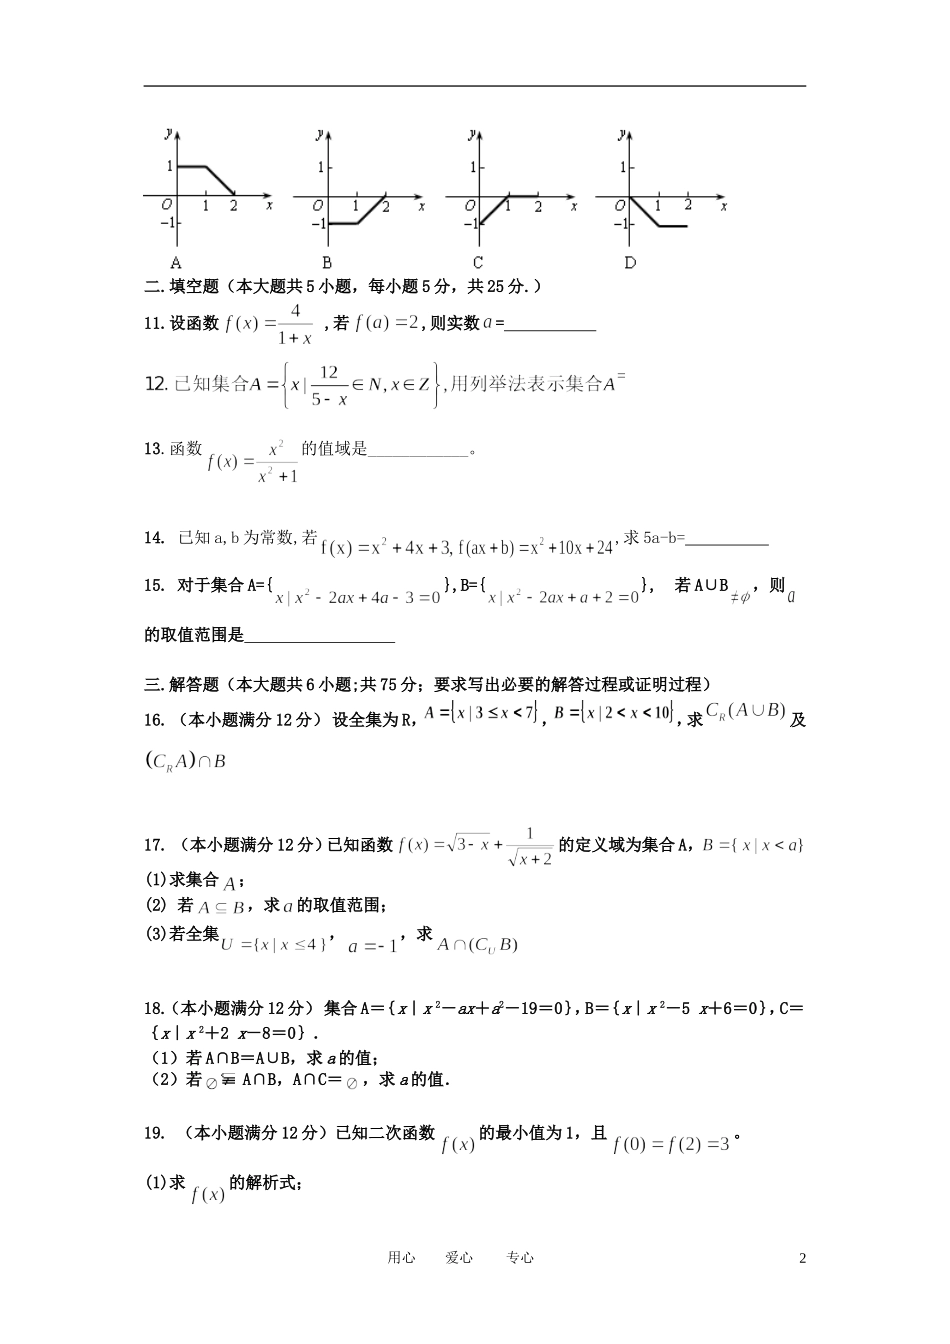 y y y y
1 1 1 1
O 1 2 x O 1 2 x O 1 2 x O 1 2 x
-1 -1 -1 -1
A B C D
二.填空题(本大题共5小题，每小题5分，共25分.)
11.设函数 f(x)=4/(1+x) ,若 f(a)=2,则实数a=___________
12.已知集合A={x|12/(5-x)∈N,x∈Z},用列举法表示集合A=
13.函数 f(x)=x²/(x²+1) 的值域是____________。
14. 已知a,b为常数,若f(x)=x²+4x+3,f(ax+b)=x²+10x+24,求5a-b=__________
15. 对于集合A={x|x²-2ax+4a-3=0},B={x|x²-2ax+a+2=0}, 若A∪B≠φ,则a
的取值范围是__________________
三.解答题(本大题共6小题;共75分；要求写出必要的解答过程或证明过程)
16.(本小题满分12分) 设全集为R，A={x|3≤x<7}，B={x|2<x<10},求C_R(A∪B)及
(C_R A)∩B
17. (本小题满分12分)已知函数 f(x)=√(3-x)+1/√(x+2) 的定义域为集合A，B={x|x<a}
(1)求集合A；
(2) 若A⊆B，求a的取值范围；
(3)若全集U={x|x≤4}，a=-1，求A∩(C_U B)
18.(本小题满分12分) 集合A＝{x∣x²－ax＋a²－19＝0},B＝{x∣x²－5 x＋6＝0},C＝
{x∣x²＋2 x－8＝0}.
（1）若A∩B＝A∪B，求a的值；
（2）若∅⫋A∩B，A∩C＝∅，求a的值.
19. (本小题满分12分)已知二次函数 f(x) 的最小值为1，且 f(0)=f(2)=3。
(1)求 f(x) 的解析式；
用心 爱心 专心 2